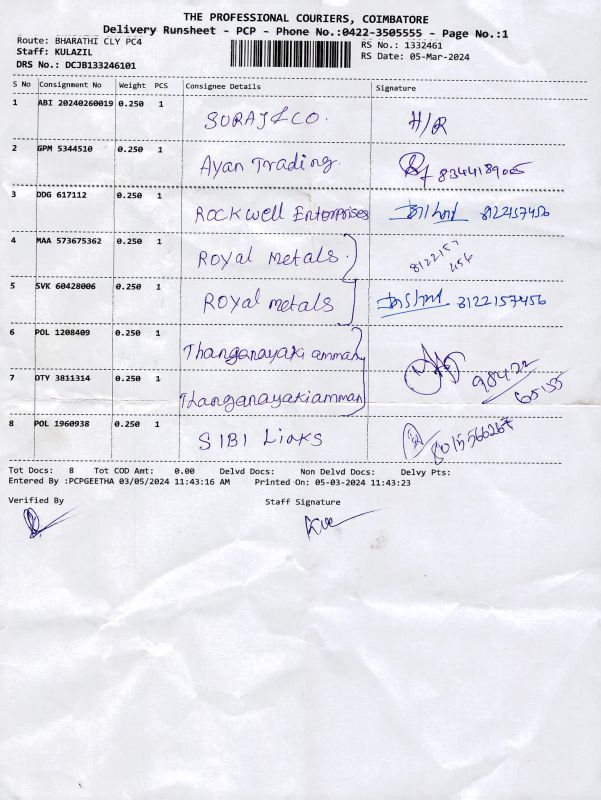 THE PROFESSIONAL COURIERS, COIMBATORE
Delivery Runsheet - PCP - Phone No.:0422-3505555 - Page No.:1
Route: BHARATHI CLY PC4
Staff: KULAZIL
DRS No.: DCJB133246101
RS No.: 1332461
RS Date: 05-Mar-2024
S No Consignment No Weight PCS Consignee Details Signature
1 ABI 20240260019 0.250 1 SURAJ & CO. H/R
2 GPM 5344510 0.250 1 Ayan Trading.
3 DDG 617112 0.250 1 Rockwell Enterprises 8122157456
4 MAA 573675362 0.250 1 Royal metals. 8122157
456
5 SVK 60428006 0.250 1 Royal metals 8122157456
6 POL 1208409 0.250 1 Thanganayaki amman 98422
7 DTY 3811314 0.250 1 Thanganayakiamman 65155
8 POL 1960938 0.250 1 SIBI Links 8015566267
Tot Docs: 8 Tot COD Amt: 0.00 Delvd Docs: Non Delvd Docs: Delvy Pts:
Entered By :PCPGEETHA 03/05/2024 11:43:16 AM Printed On: 05-03-2024 11:43:23
Verified By Staff Signature